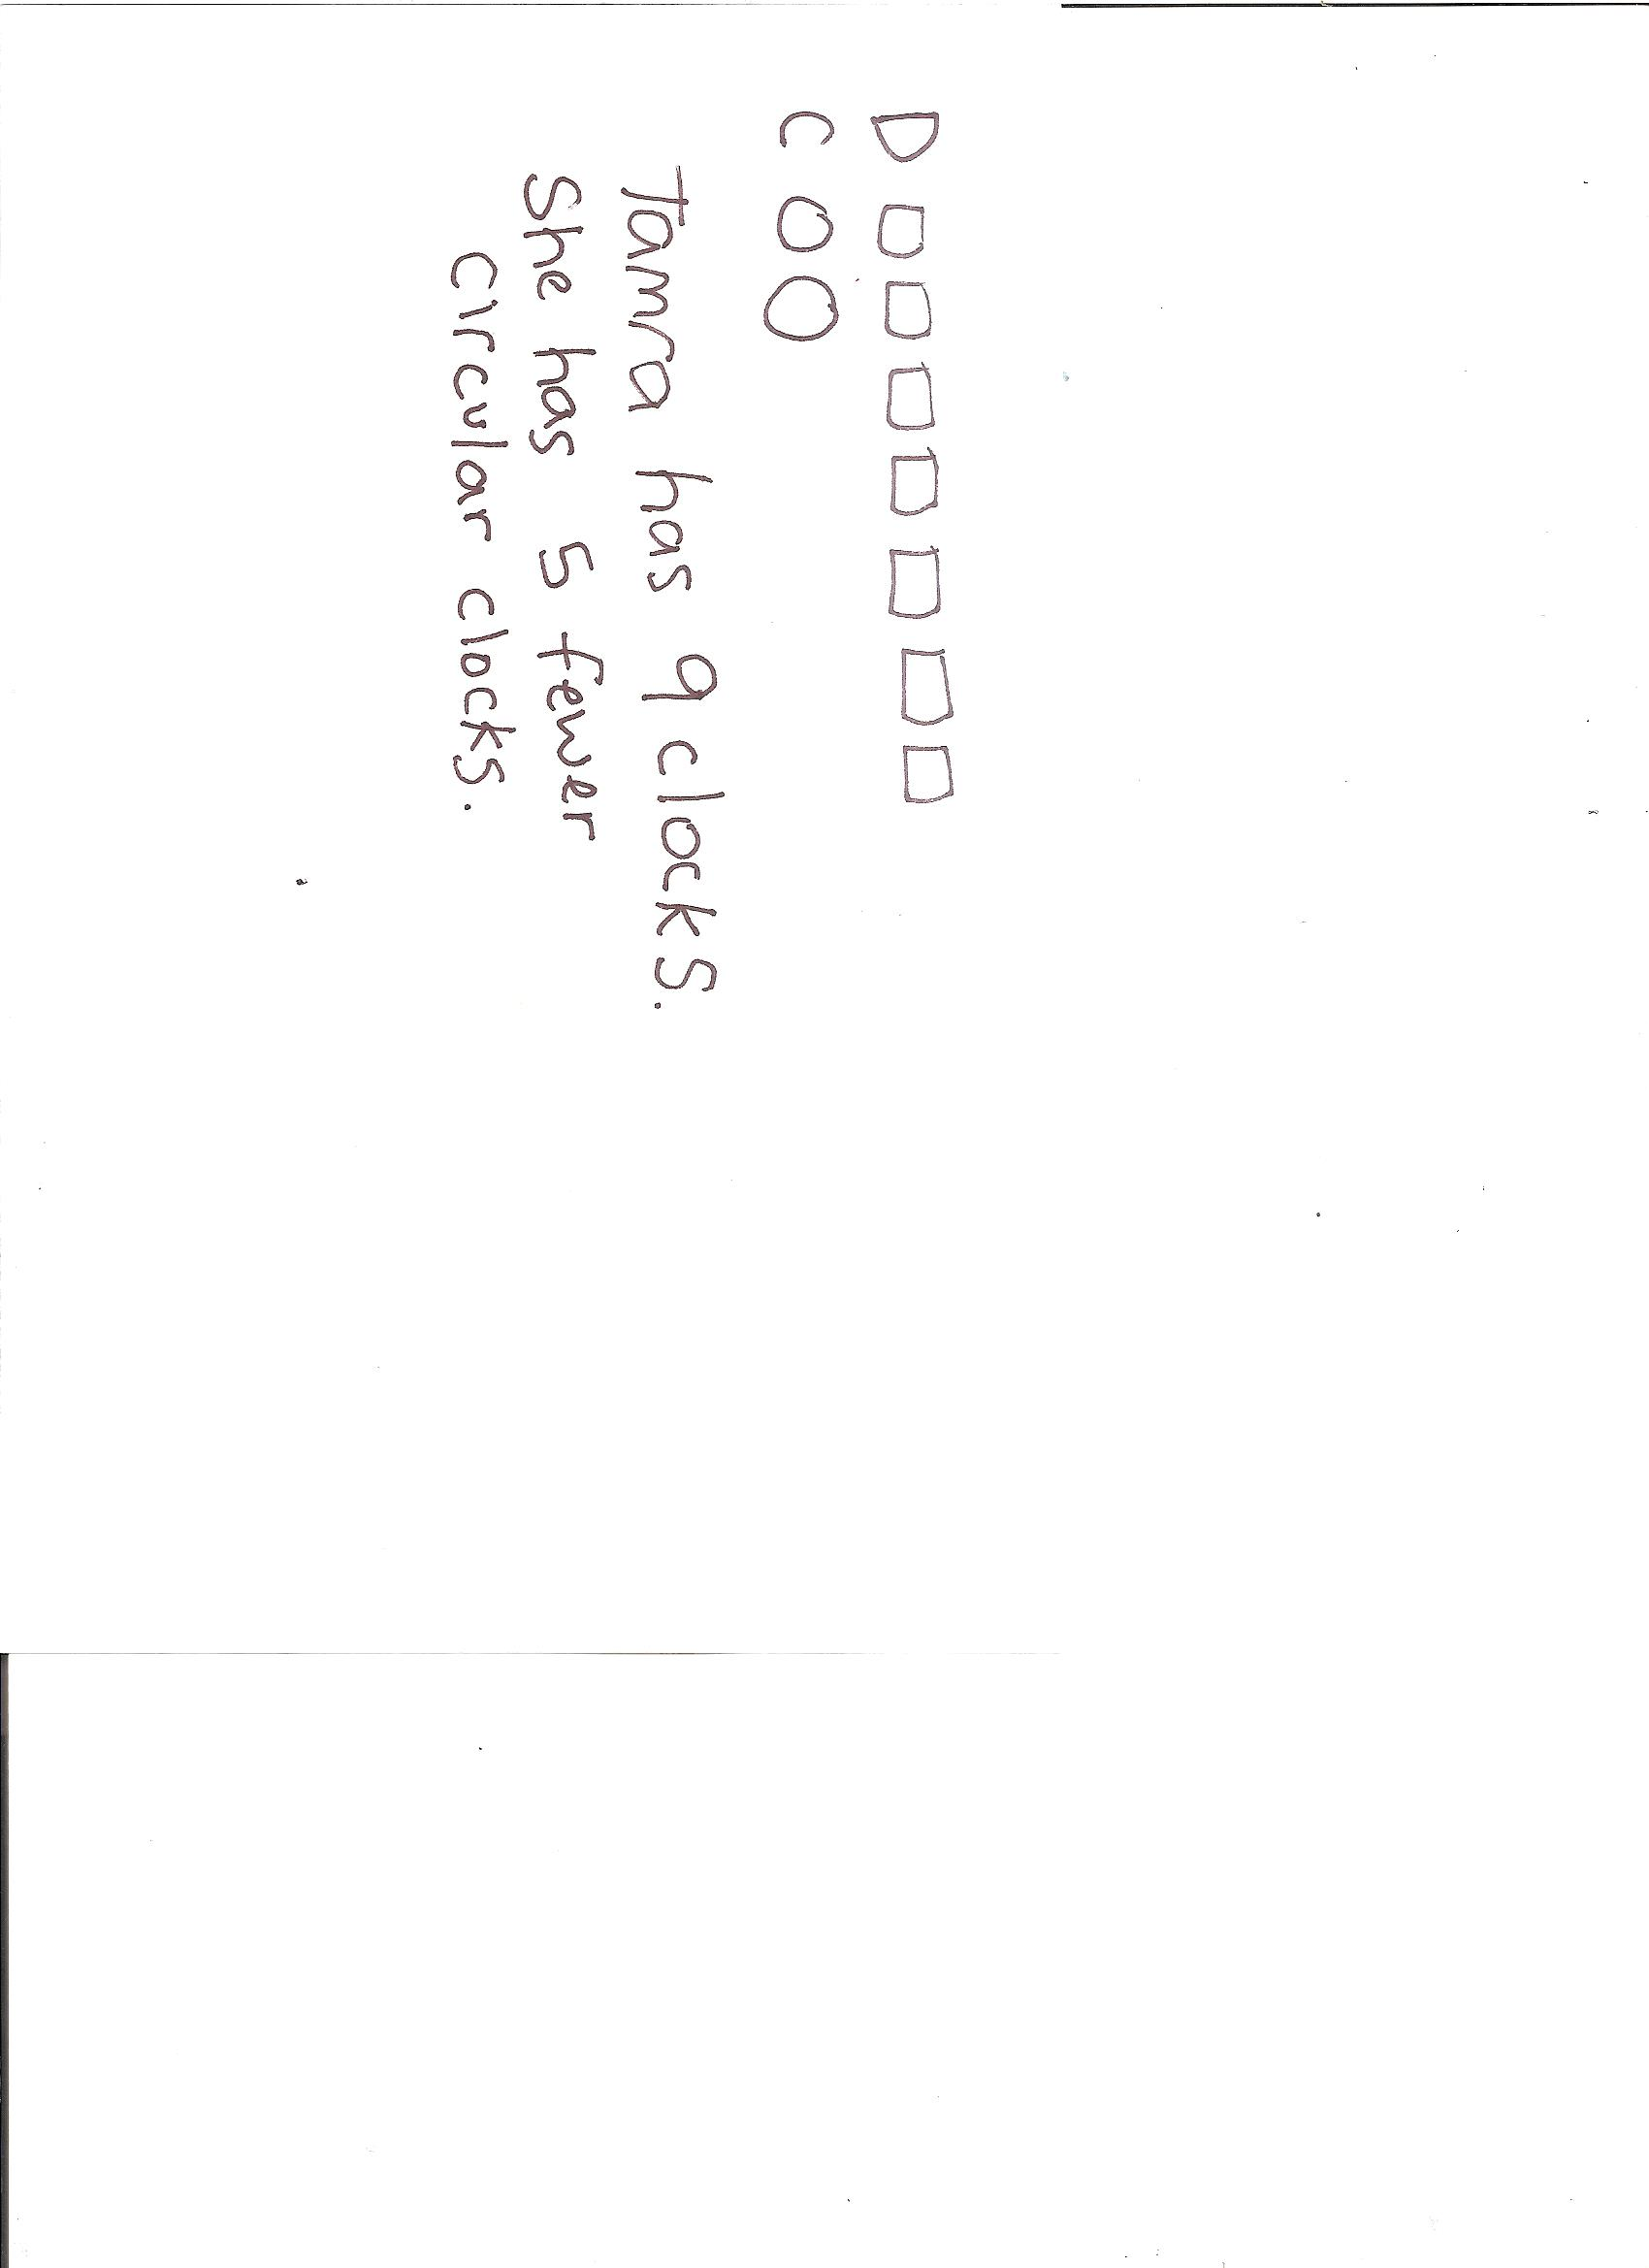 D
C
Tamra has 9 clocks.
She has 5 fewer
circular clocks.